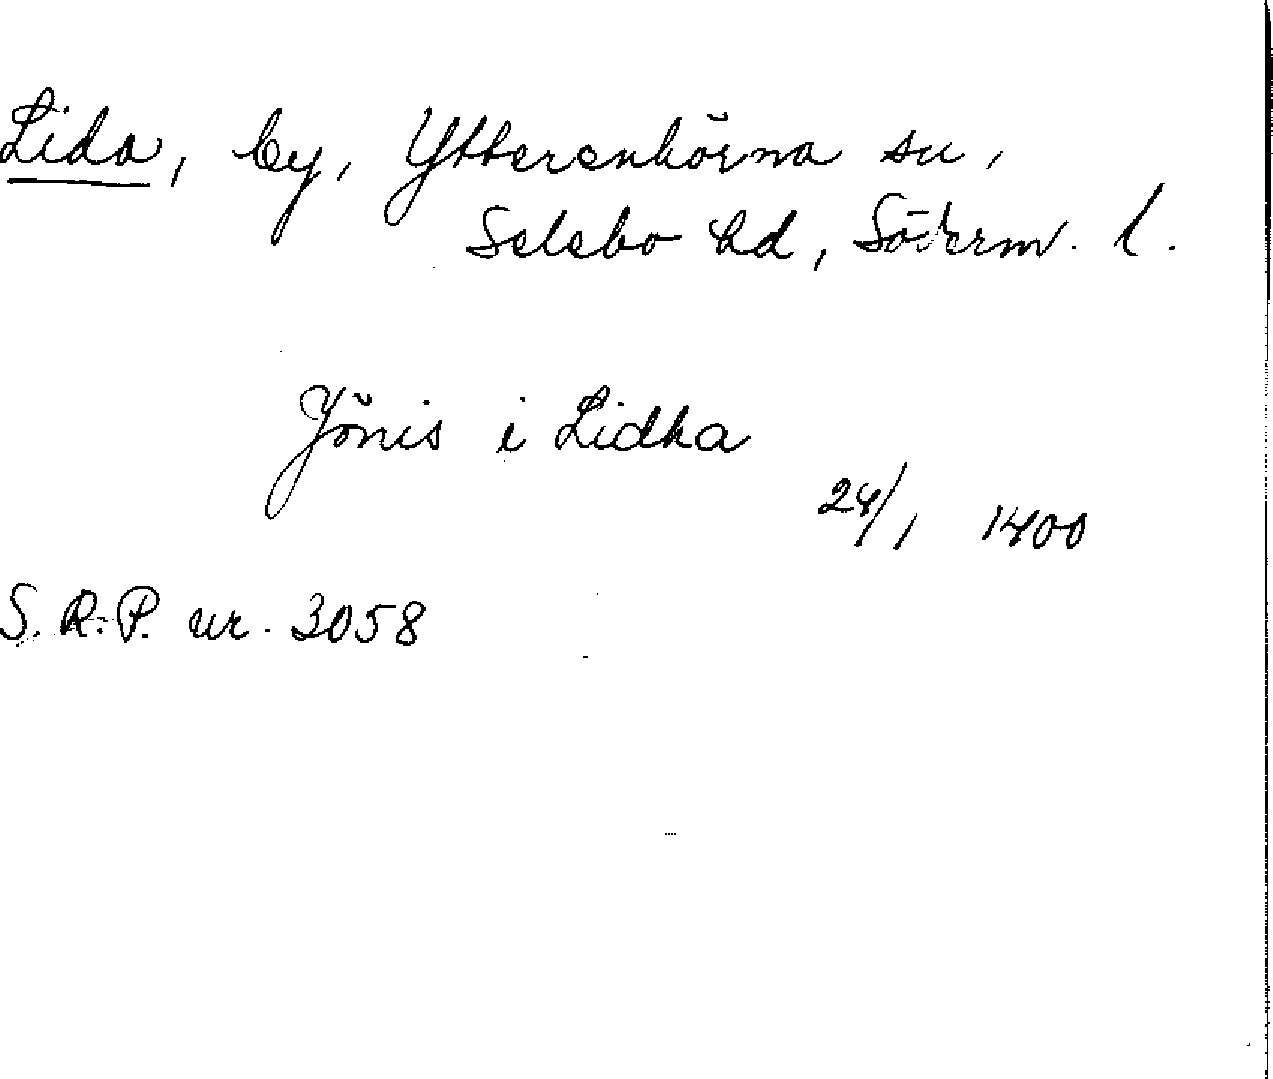 Lida, by, Ytterenhörna sn,
Selebo hd, Söderm. l.
Jönis i Lidha
24/1 1400
S. R. P. nr. 3058